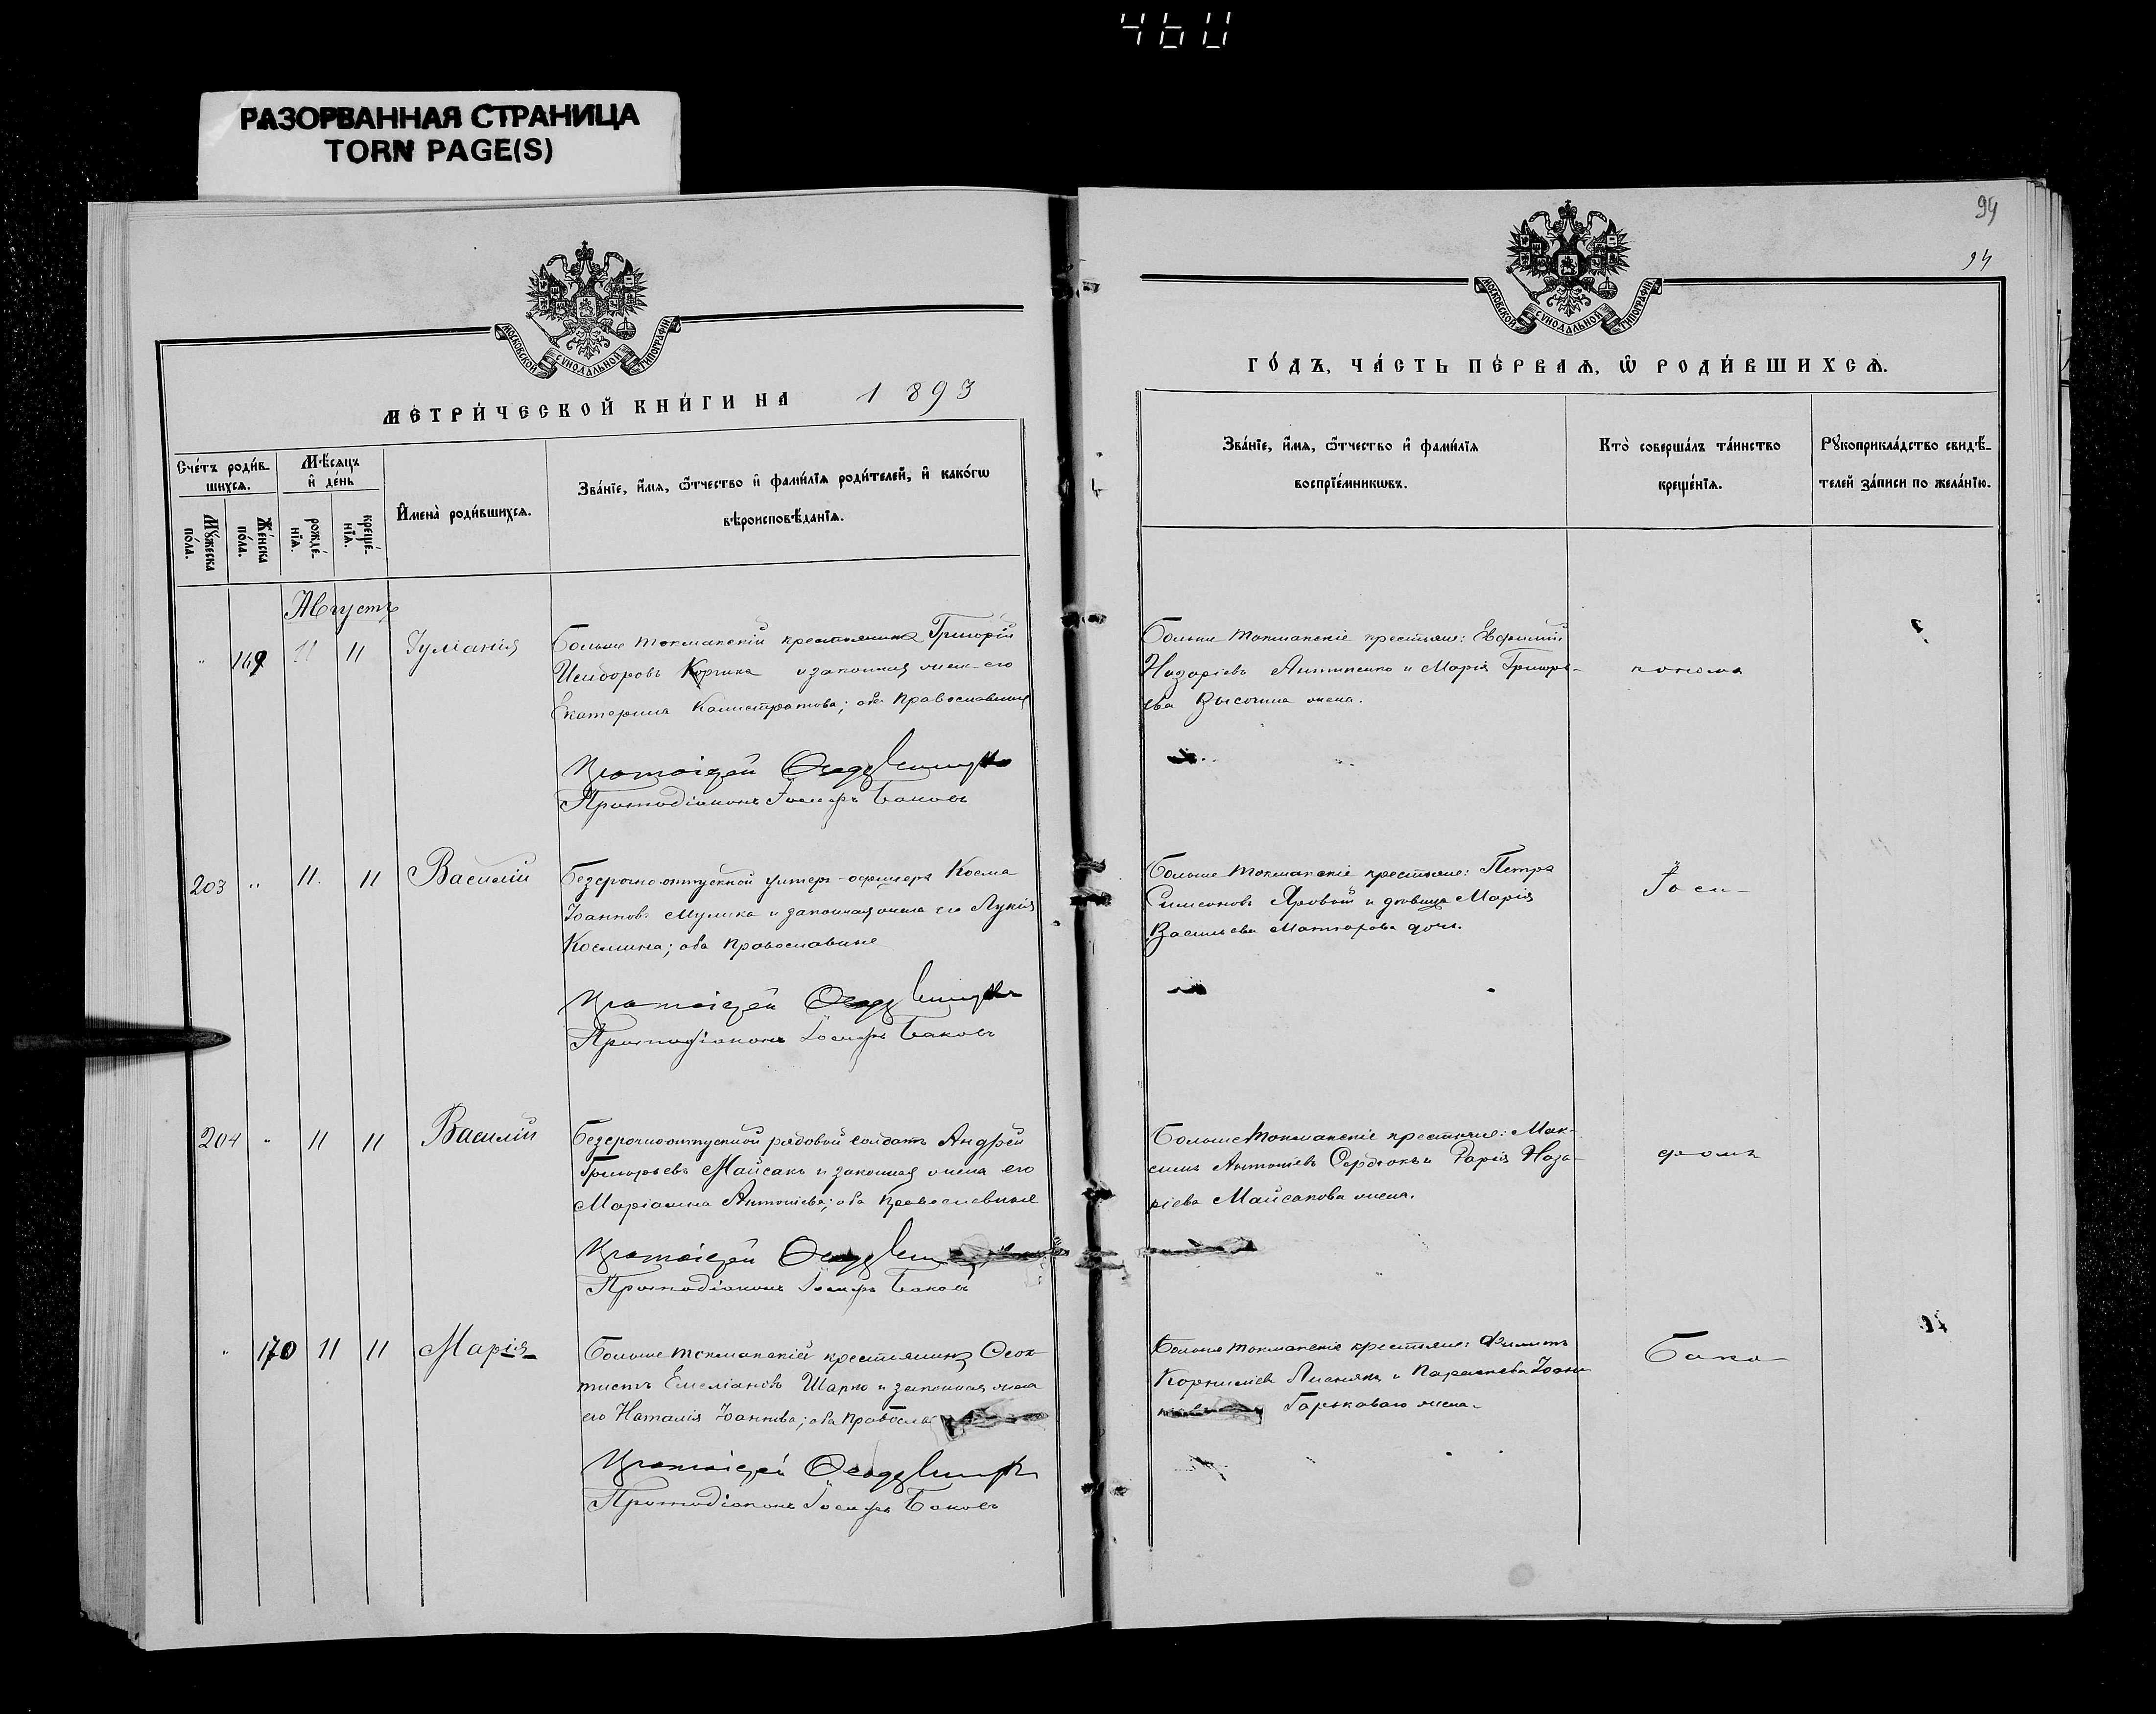 460
РАЗОРВАННАЯ СТРАНИЦА
TORN PAGE(S)
МОСКОВСКОЙ СУНОДАЛЬНОЙ ТИПОГРАФІИ
МЕТРИ́ЧЕСКОЙ КНИ́ГИ НА 1893
Сче́тъ роди́в-
шихсѧ.
Мѣ́сѧцъ
и҆ де́нь
Мꙋ́жеска
по́ла.
Же́нска
по́ла.
рожде́-
нїѧ.
креще́-
нїѧ.
И҆мена̀ роди́вшихсѧ.
Зва́нїе, и҆́мѧ, ѻ҆́тчество и҆ фами́лїѧ роди́телей, и҆ како́гѡ
вѣроисповѣ́данїѧ.
Августъ
" 169 11 11 Іуліанія
Больше Токмакскій крестьянинъ Григорій
Исидоровъ Корчика и законная жена его
Екатерина Калистратова; оба православные
Протоіерей
Протодіаконъ Іосифъ Баковъ
203 " 11 11 Василій
Безсрочноотпускной унтеръ-офицеръ Косма
Іоанновъ Мулика и законная жена его Лукія
Космина; оба православные
Протоіерей
Протодіаконъ Іосифъ Баковъ
204 " 11 11 Василій
Безсрочноотпускной рядовой солдатъ Андрей
Григорьевъ Майсакъ и законная жена его
Маріамна Антоніева; оба православные
Протоіерей
Протодіаконъ Іосифъ Баковъ
" 170 11 11 Марія
Больше Токмакскій крестьянинъ Ѳеок-
тистъ Емеліановъ Шарко и законная жена
его Наталія Іоаннова; оба правосла
Протоіерей
Протодіаконъ Іосифъ Баковъ
94
94
МОСКОВСКОЙ СУНОДАЛЬНОЙ ТИПОГРАФІИ
ГО́ДЪ, ЧА́СТЬ ПЕ́РВАѦ, Ѡ҆ РОДИ́ВШИХСѦ.
Зва́нїе, и҆́мѧ, ѻ҆́тчество и҆ фами́лїѧ
воспрїе́мникѡвъ.
Кто̀ соверша́лъ та́инство
креще́нїѧ.
Рꙋкоприкла́дство свидѣ́-
телей за́писи по жела́нїю.
Больше Токмакскіе крестьяне: Евфимій
Назаріевъ Антипенко и Марія Григорь-
ева Высочина жена.
Больше Токмакскіе крестьяне: Петръ
Симеоновъ Яровой и дѣвица Марія
Васильева дочь.
Іоси-
Больше Токмакскіе крестьяне: Мак-
симъ Антоніевъ Сердюкъ и Дарія Наза-
ріева Майсакова жена.
фомъ
Больше Токмакскіе крестьяне: Филиппъ
Корниліевъ Лиснякъ и Параскева Іоан-
Горьковаго жена.
Бако-